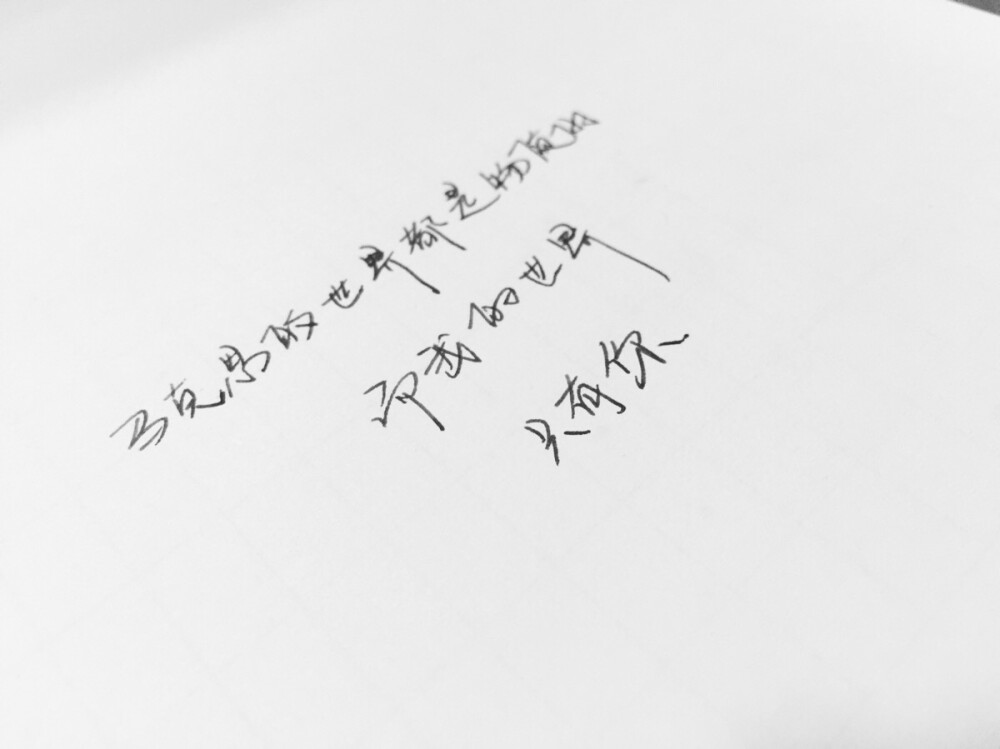 马克思的世界都是物质的
而我的世界
只有你、